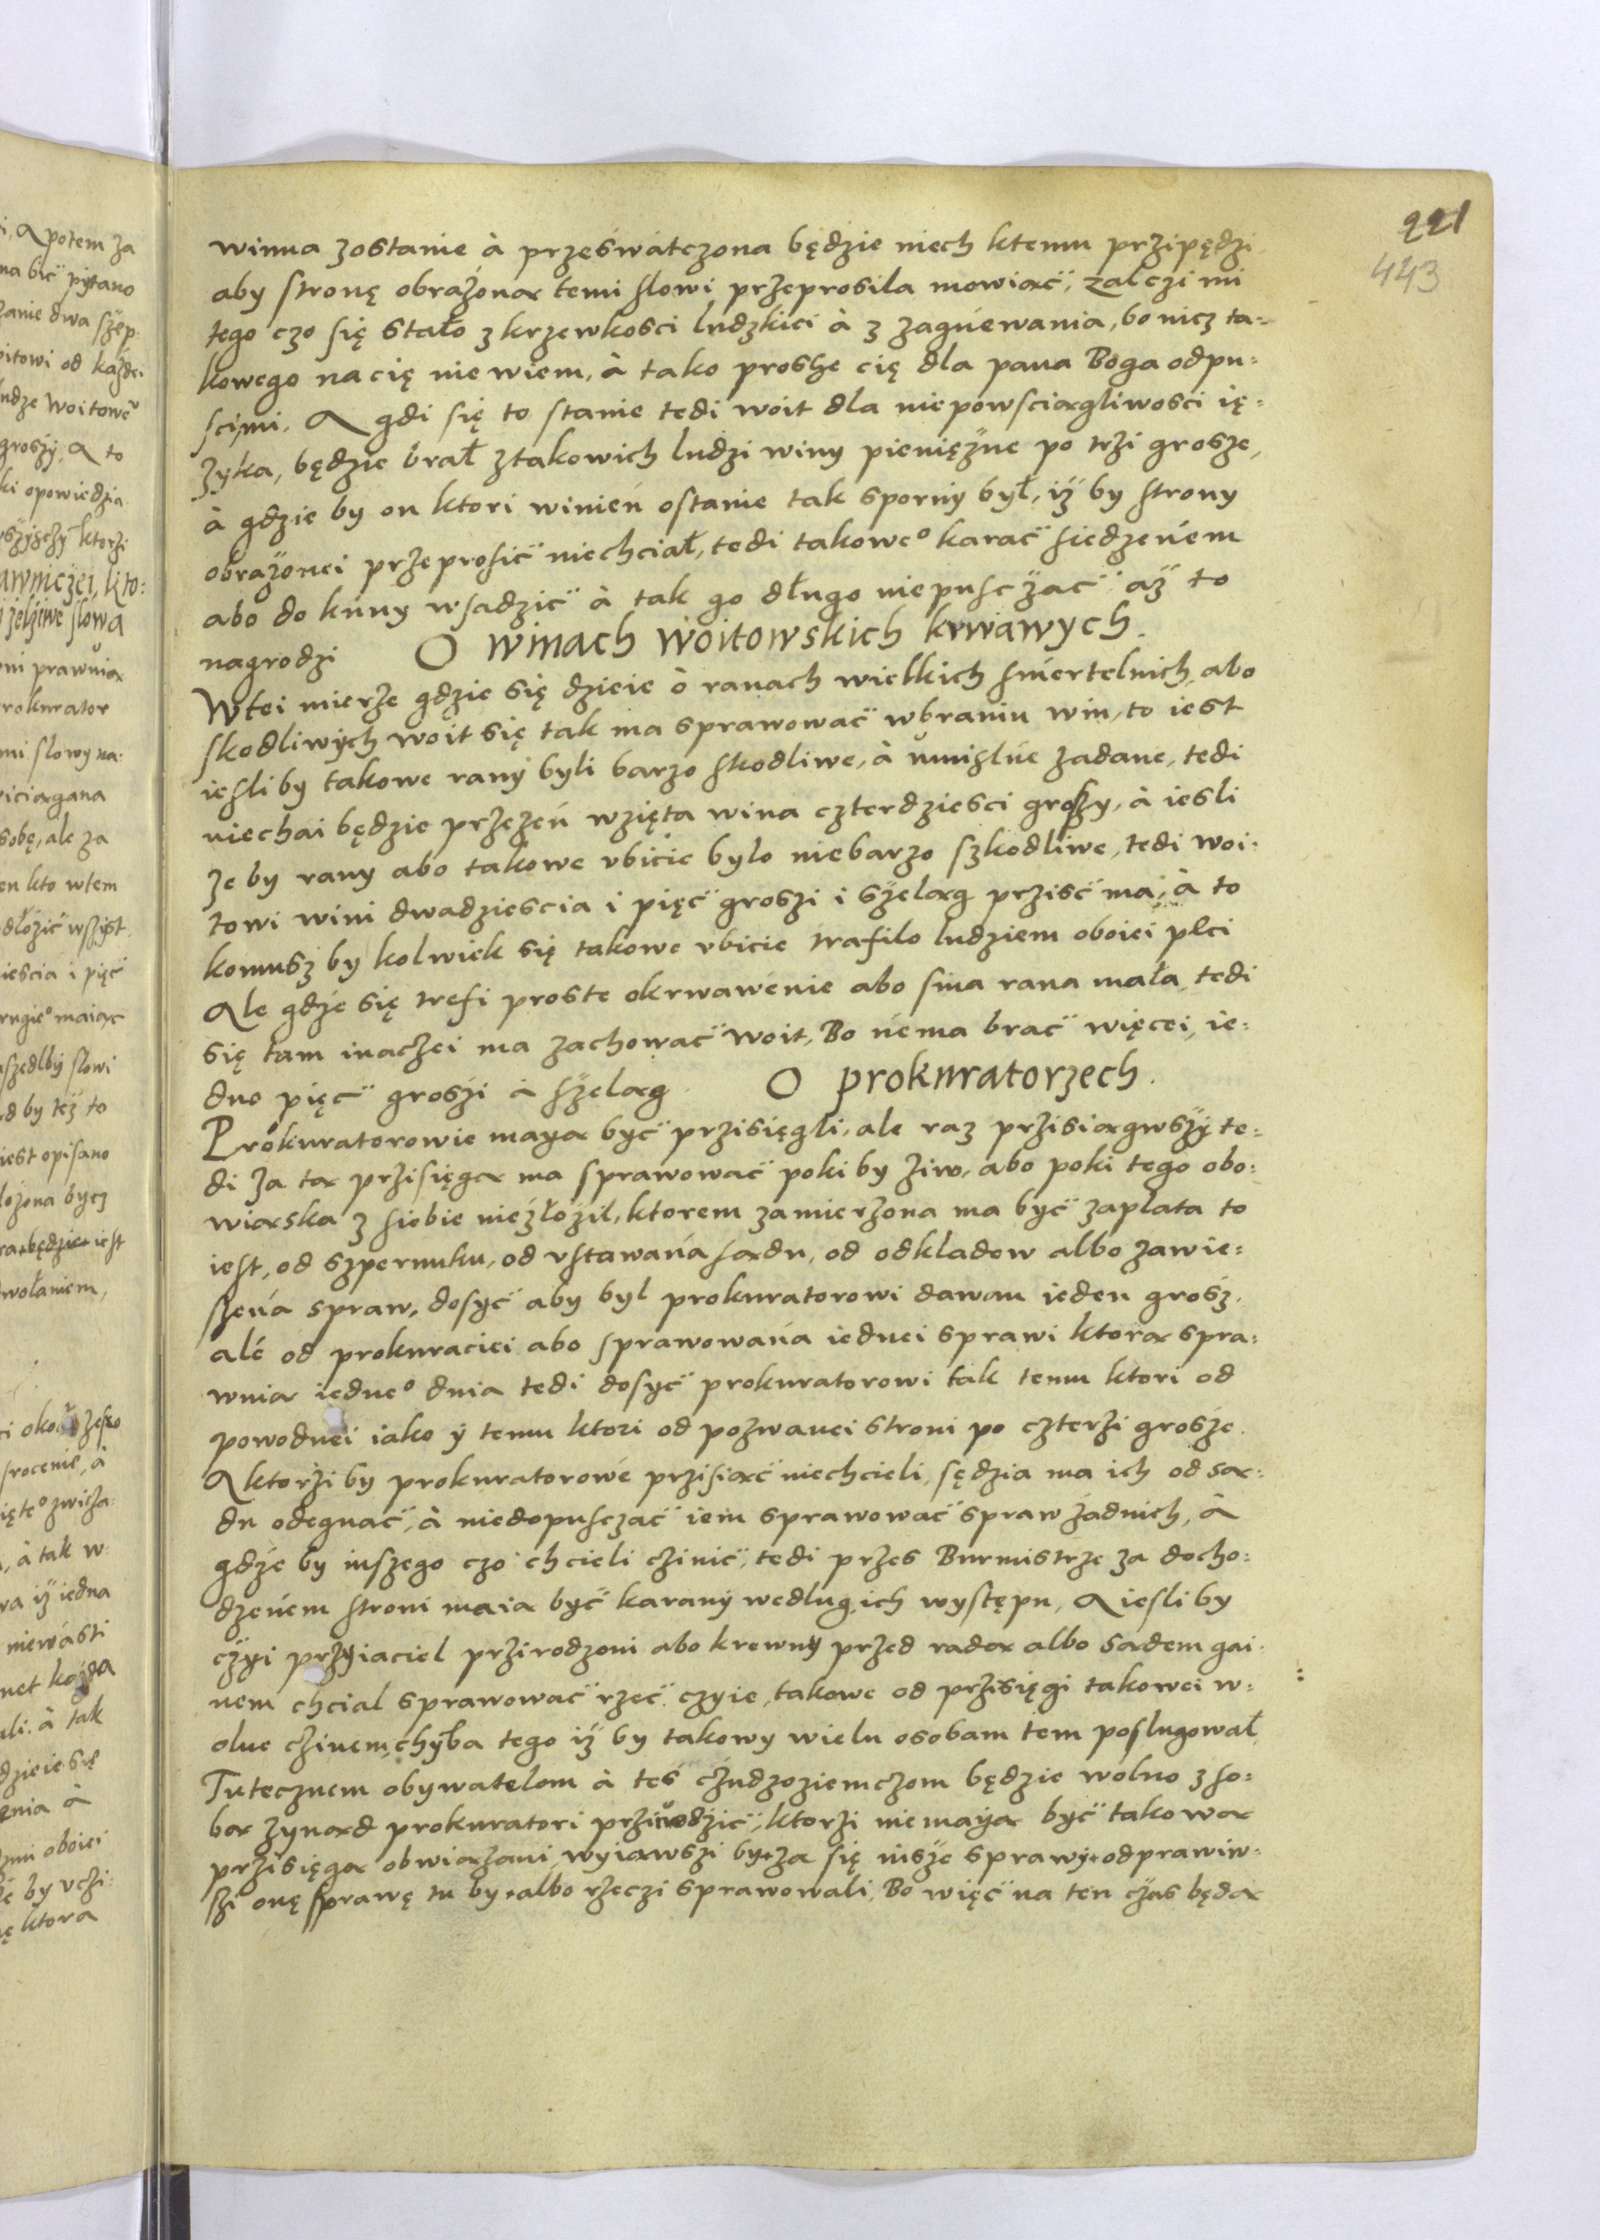 221
443
winna zostanie à prześwátczona będzie niech ktemu przipędzi
aby stronę obrażoną temi słowi przeprosila mowiąć, żal czi mi
tego czo się stało z krzewkosci ludzkiei à z zagńewania, bo nicz ta=
kowego na cię nie wiem, à tako proshe cię dla pana Boga odpu=
sci mi. A gdi się to stanie tedi woit dla niepowsciągliwosci ię=
zyka, będzie brał ztakowich ludzi winy pieniężne po trzi grosze,
à gdzie by on ktori winień ostanie tak sporny był, iż by strony
obrażonei przeprosić niechciał, tedi takowe° karać siedzeńem
abo do kuny wsadzić à tak go długo niepusczać aż to
nagrodzi O winach woitowskich krwawych.
Wtei mierze gdzie się dzieie ò ranach wielkich smiertelnich abo
skodliwych woit się tak ma sprawować wbraniu win, to iest
iesli by takowe rany byli barzo skodliwe, à umislńe zadane, tedi
niechai będzie przezeń wzięta wina czterdziesci groszy, à iesli
ze by rany abo takowe vbicie bylo niebarzo szkodliwe, tedi woi=
towi wini dwadziescia i pięć groszi i szeląg przisć ma, à to
komusz by kolwiek się takowe vbicie trafilo ludziem oboiei płci
Ale gdźe się trefi proste okrwawéenie abo sina rana mała tedi
się tam inaczei ma zachować woit, Bo ńema brać więcei, ie=
dno pięć groszi à szeląg. O prokuratorzech.
Prokuratorowie mayą być przisięgli, ale raz przisiągwszy te=
di za tą przisięgą ma sprawować poki by żiw, abo poki tego obo=
wiąska z siebie niezłożil, ktorem zamierzona ma być zaplata to
iest, od szpernuku, od vstawańa sądu, od odkladow albo zawie=
szeńa spraw, dosyć aby byl prokuratorowi dawan ieden grosz,
alé od prokuraciei abo sprawowańa iednei sprawi ktorą spra=
wuią iedne° dnia tedi dosyć prokuratorowi tak temu ktori od
powodnei iako y temu ktori od pozwanei stroni po czterzi grosze.
A ktorzi by prokuratorowé przisiąć niechcieli, sędzia ma ich od są=
du odegnać, à niedopusczać iem sprawować spraw żadnich, à
gdźe by inszego czo chcieli czinić, tedi przes Burmistrze za docho=
dzeńem stroni maią być karany wedlug ich występu, A iesli by
czyi przyiaciel przirodzoni abo krewny przed radą albo sądem gai=
nem chcial sprawować rzeć czyie, takowe od przisięgi takowei w=
olne czinem, chyba tego iż by takowy wielu osobam tem poslugował
Tutecznem obywatelom à teś czudzoziemczom będzie wolno z so=
bą zynąd prokuratori przẃodzić, ktorzi nie mayą być takową
przisięgą obwiązani, wyiąwszi by za się insze sprawy odprawiw=
szi onę sprawę tu by albo rzeczi sprawowali, Bo więć na ten czas będą